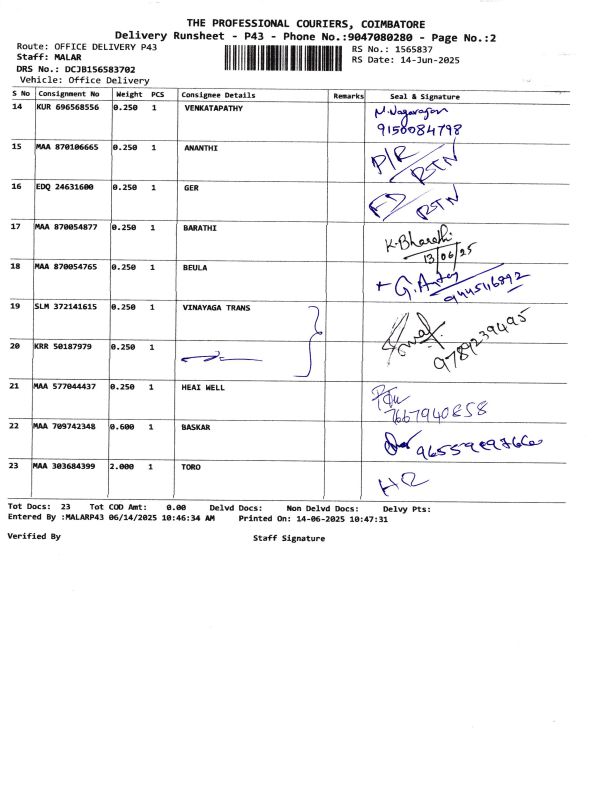 THE PROFESSIONAL COURIERS, COIMBATORE
Delivery Runsheet - P43 - Phone No.:9047080280 - Page No.:2
Route: OFFICE DELIVERY P43
RS No.: 1565837
Staff: MALAR
RS Date: 14-Jun-2025
DRS No.: DCJB156583702
Vehicle: Office Delivery
S No Consignment No Weight PCS Consignee Details Remarks Seal & Signature
14 KUR 696568556 0.250 1 VENKATAPATHY N. Nagarajan
9150084798
15 MAA 870106665 0.250 1 ANANTHI P/R
RSTN
16 EDQ 24631600 0.250 1 GER
RSTN
17 MAA 870054877 0.250 1 BARATHI K. Bharathi
13/06/25
18 MAA 870054765 0.250 1 BEULA
19 SLM 372141615 0.250 1 VINAYAGA TRANS
9789239495
20 KRR 50187979 0.250 1
21 MAA 577044437 0.250 1 HEAI WELL
7667940858
22 MAA 709742348 0.600 1 BASKAR
23 MAA 303684399 2.000 1 TORO HR
Tot Docs: 23 Tot COD Amt: 0.00 Delvd Docs: Non Delvd Docs: Delvy Pts:
Entered By :MALARP43 06/14/2025 10:46:34 AM Printed On: 14-06-2025 10:47:31
Verified By Staff Signature